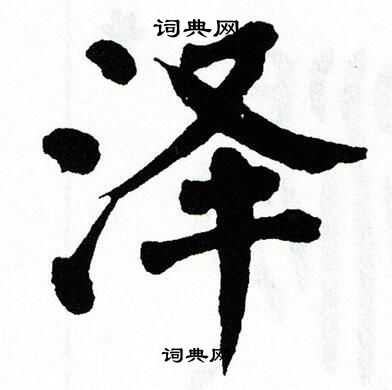 词典网
泽
词典网